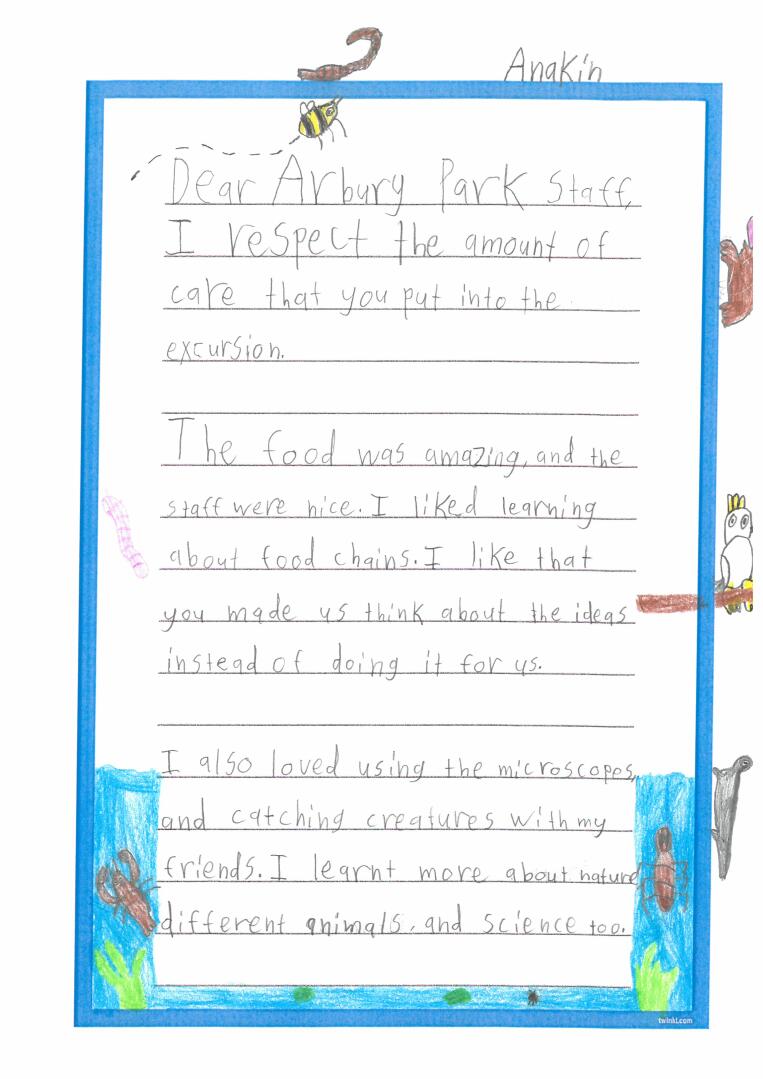 Anakin
Dear Arbury Park Staff,
I respect the amount of
care that you put into the
excursion.
The food was amazing, and the
staff were nice. I liked learning
about food chains. I like that
you made us think about the ideas
instead of doing it for us.
I also loved using the microscopes,
and catching creatures with my
friends. I learnt more about nature
different animals, and science too.
twinkl.com